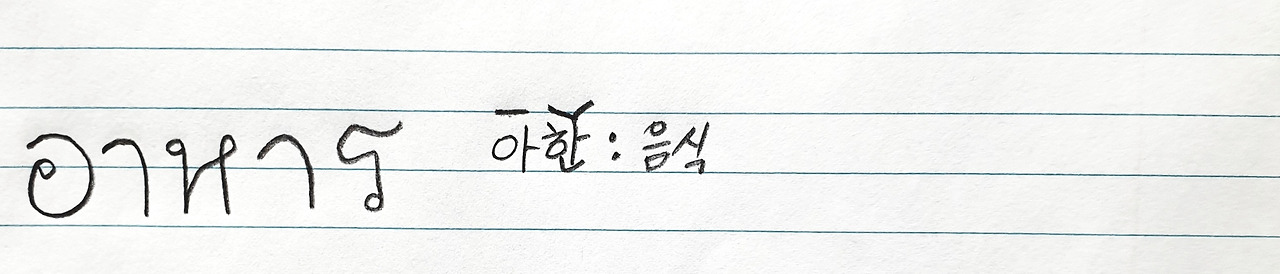 อาหาร 아한 : 음식